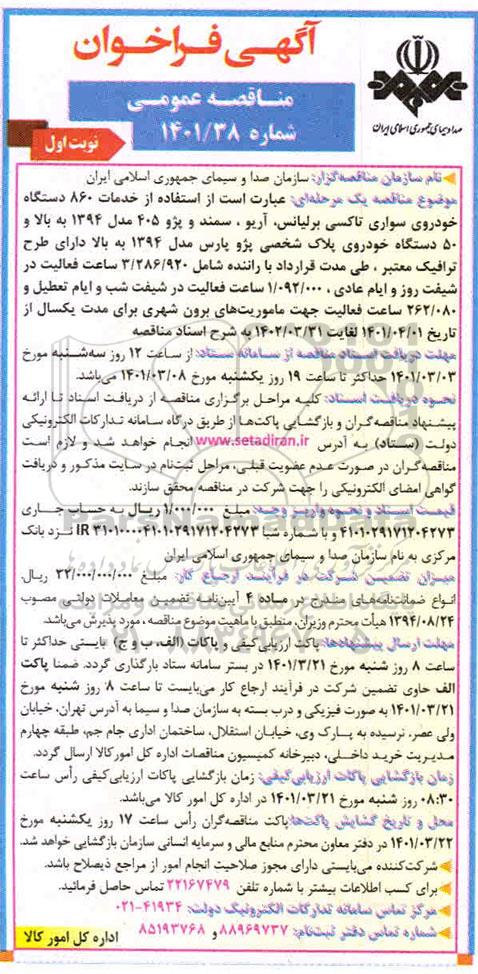 آگهی فراخوان
مناقصه عمومی
شماره ۱۴۰۱/۳۸
نوبت اول
صدا و سیمای جمهوری اسلامی ایران
نام سازمان مناقصه‌گزار: سازمان صدا و سیمای جمهوری اسلامی ایران
موضوع مناقصه یک مرحله‌ای: عبارت است از استفاده از خدمات ۸۶۰ دستگاه
خودروی سواری تاکسی برلیانس، آریو ، سمند و پژو ۴۰۵ مدل ۱۳۹۴ به بالا و
۵۰ دستگاه خودروی پلاک شخصی پژو پارس مدل ۱۳۹۴ به بالا دارای طرح
ترافیک معتبر ، طی مدت قرارداد با راننده شامل ۳/۲۸۶/۹۲۰ ساعت فعالیت در
شیفت روز و ایام عادی ، ۱/۰۹۲/۰۰۰ ساعت فعالیت در شیفت شب و ایام تعطیل و
۲۶۲/۰۸۰ ساعت فعالیت جهت ماموریت‌های برون شهری برای مدت یکسال از
تاریخ ۱۴۰۱/۰۴/۰۱ لغایت ۱۴۰۲/۰۳/۳۱ به شرح اسناد مناقصه
مهلت دریافت اسناد مناقصه از سامانه ستاد: از ساعت ۱۲ روز سه‌شنبه مورخ
۱۴۰۱/۰۳/۰۳ حداکثر تا ساعت ۱۹ روز یکشنبه مورخ ۱۴۰۱/۰۳/۰۸ می‌باشد.
نحوه دریافت اسناد: کلیه مراحل برگزاری مناقصه از دریافت اسناد تا ارائه
پیشنهاد مناقصه‌گران و بازگشایی پاکت‌ها از طریق درگاه سامانه تدارکات الکترونیکی
دولت (ستاد) به آدرس www.setadiran.ir انجام خواهد شد و لازم است
مناقصه‌گران در صورت عدم عضویت قبلی، مراحل ثبت‌نام در سایت مذکور و دریافت
گواهی امضای الکترونیکی را جهت شرکت در مناقصه محقق سازند.
قیمت اسناد و نحوه واریز وجه: مبلغ ۱/۰۰۰/۰۰۰ ریال به حساب جاری
۴۱۰۱۰۲۹۱۷۱۲۰۴۲۷۳ و با شماره شبا IR ۳۱۰۱۰۰۰۰۴۱۰۱۰۲۹۱۷۱۲۰۴۲۷۳ نزد بانک
مرکزی به نام سازمان صدا و سیمای جمهوری اسلامی ایران
میزان تضمین شرکت در فرآیند ارجاع کار: مبلغ ۲۲/۰۰۰/۰۰۰/۰۰۰ ریال.
انواع ضمانتنامه‌های مندرج در ماده ۴ آیین‌نامه تضمین معاملات دولتی مصوب
۱۳۹۴/۰۸/۲۴ هیأت محترم وزیران، منطبق با ماهیت موضوع مناقصه ، مورد پذیرش می‌باشد.
مهلت ارسال پیشنهادها: پاکت ارزیابی‌کیفی و پاکات (الف، ب و ج) بایستی حداکثر تا
ساعت ۸ روز شنبه مورخ ۱۴۰۱/۳/۲۱ در بستر سامانه ستاد بارگذاری گردد. ضمنا پاکت
الف حاوی تضمین شرکت در فرآیند ارجاع کار می‌بایست تا ساعت ۸ روز شنبه مورخ
۱۴۰۱/۰۳/۲۱ به صورت فیزیکی و درب بسته به سازمان صدا و سیما به آدرس تهران، خیابان
ولی عصر، نرسیده به پارک وی، خیابان استقلال، ساختمان اداری جام جم، طبقه چهارم
مدیریت خرید داخلی، دبیرخانه کمیسیون مناقصات اداره کل امور کالا ارسال گردد.
زمان بازگشایی پاکات ارزیابی‌کیفی: زمان بازگشایی پاکات ارزیابی‌کیفی رأس ساعت
۰۸:۳۰ روز شنبه مورخ ۱۴۰۱/۰۳/۲۱ در اداره کل امور کالا می‌باشد.
محل و تاریخ گشایش پاکت‌ها: پاکت مناقصه‌گران رأس ساعت ۱۷ روز یکشنبه مورخ
۱۴۰۱/۰۳/۲۲ در دفتر معاون محترم منابع مالی و سرمایه انسانی سازمان بازگشایی خواهد شد.
شرکت‌کننده می‌بایستی دارای مجوز صلاحیت انجام امور از مراجع ذیصلاح باشد.
برای کسب اطلاعات بیشتر با شماره تلفن ۲۲۱۶۷۴۷۹ تماس حاصل فرمائید.
مرکز تماس سامانه تدارکات الکترونیک دولت: ۴۱۹۳۴-۰۲۱
شماره تماس دفتر ثبت‌نام: ۸۸۹۶۹۷۳۷ و ۸۵۱۹۳۷۶۸
اداره کل امور کالا